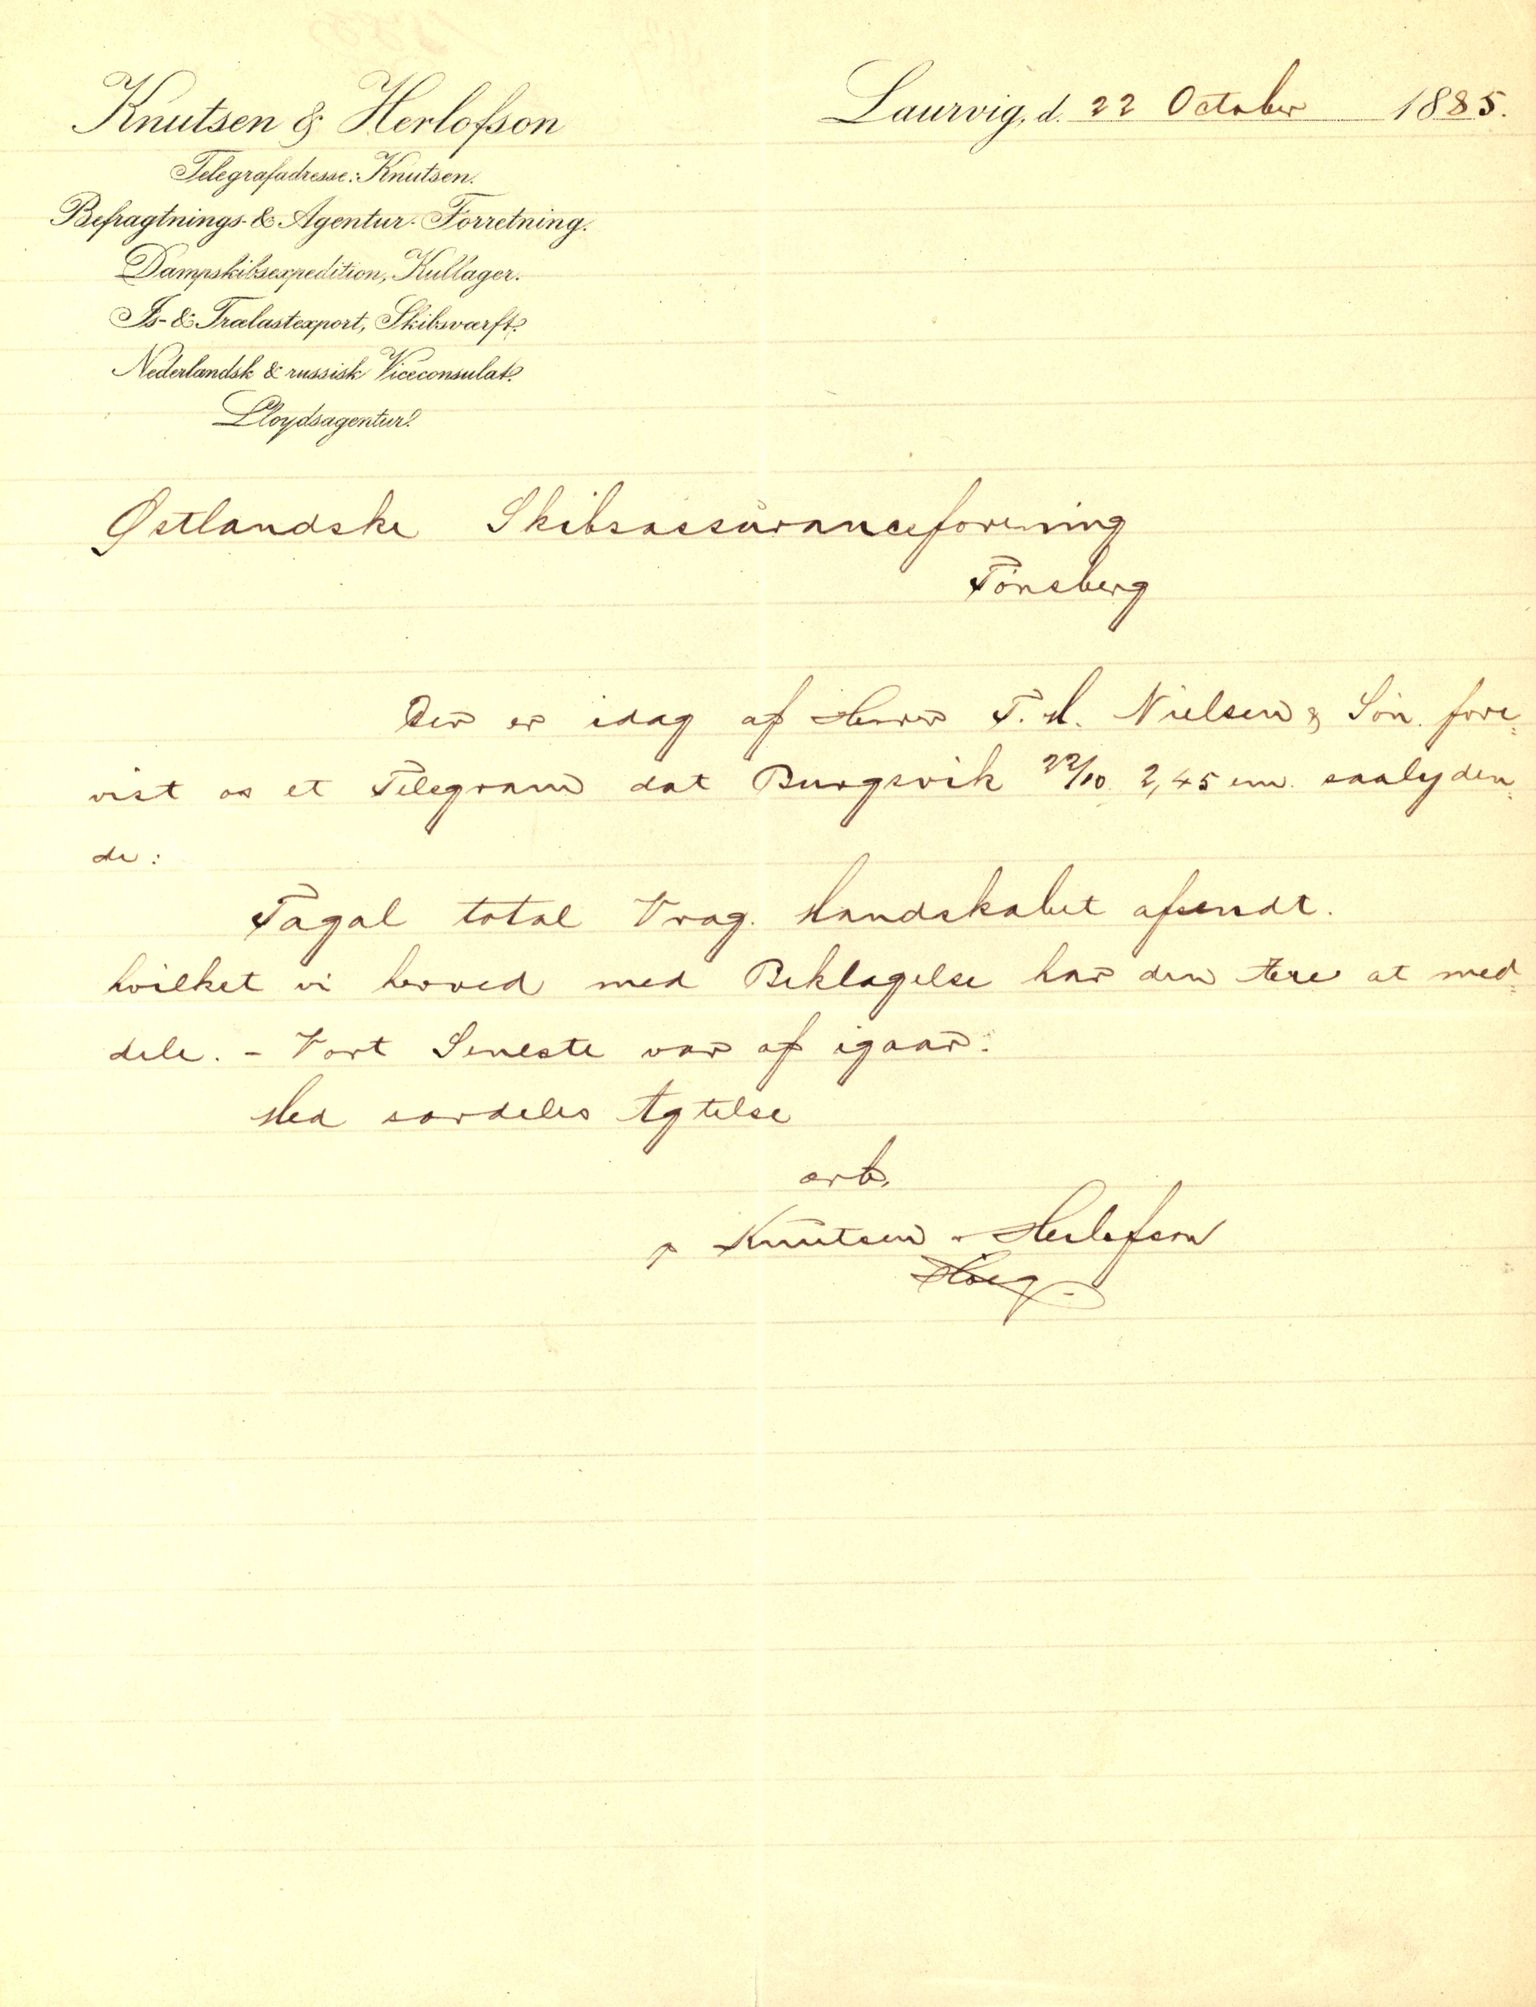 Knutsen & Herlofson
Laurvig, d. 22 October 1885.
Telegrafadresse: Knutsen.
Befragtnings- & Agentur-Forretning.
Dampskibsexpedition, Kullager.
Is- & Trælastexport, Skibsværft.
Nederlandsk & russisk Viceconsulat.
Lloydsagentur.
Østlandske Skibsassuranceforening
Tønsberg
Der er idag af Herrer T. M. Nielsen & Søn fore-
vist os et Telegram dat Burgsvik 22/10 2,45 em. saalyden-
de:
Tagal total Vrag. Mandskabet afsendt.
hvilket vi herved med Beklagelse har den Ære at med-
dele. - Vort Seneste var af igaar.
Med særdeles Agtelse
ærb.
p Knutsen & Herlofson